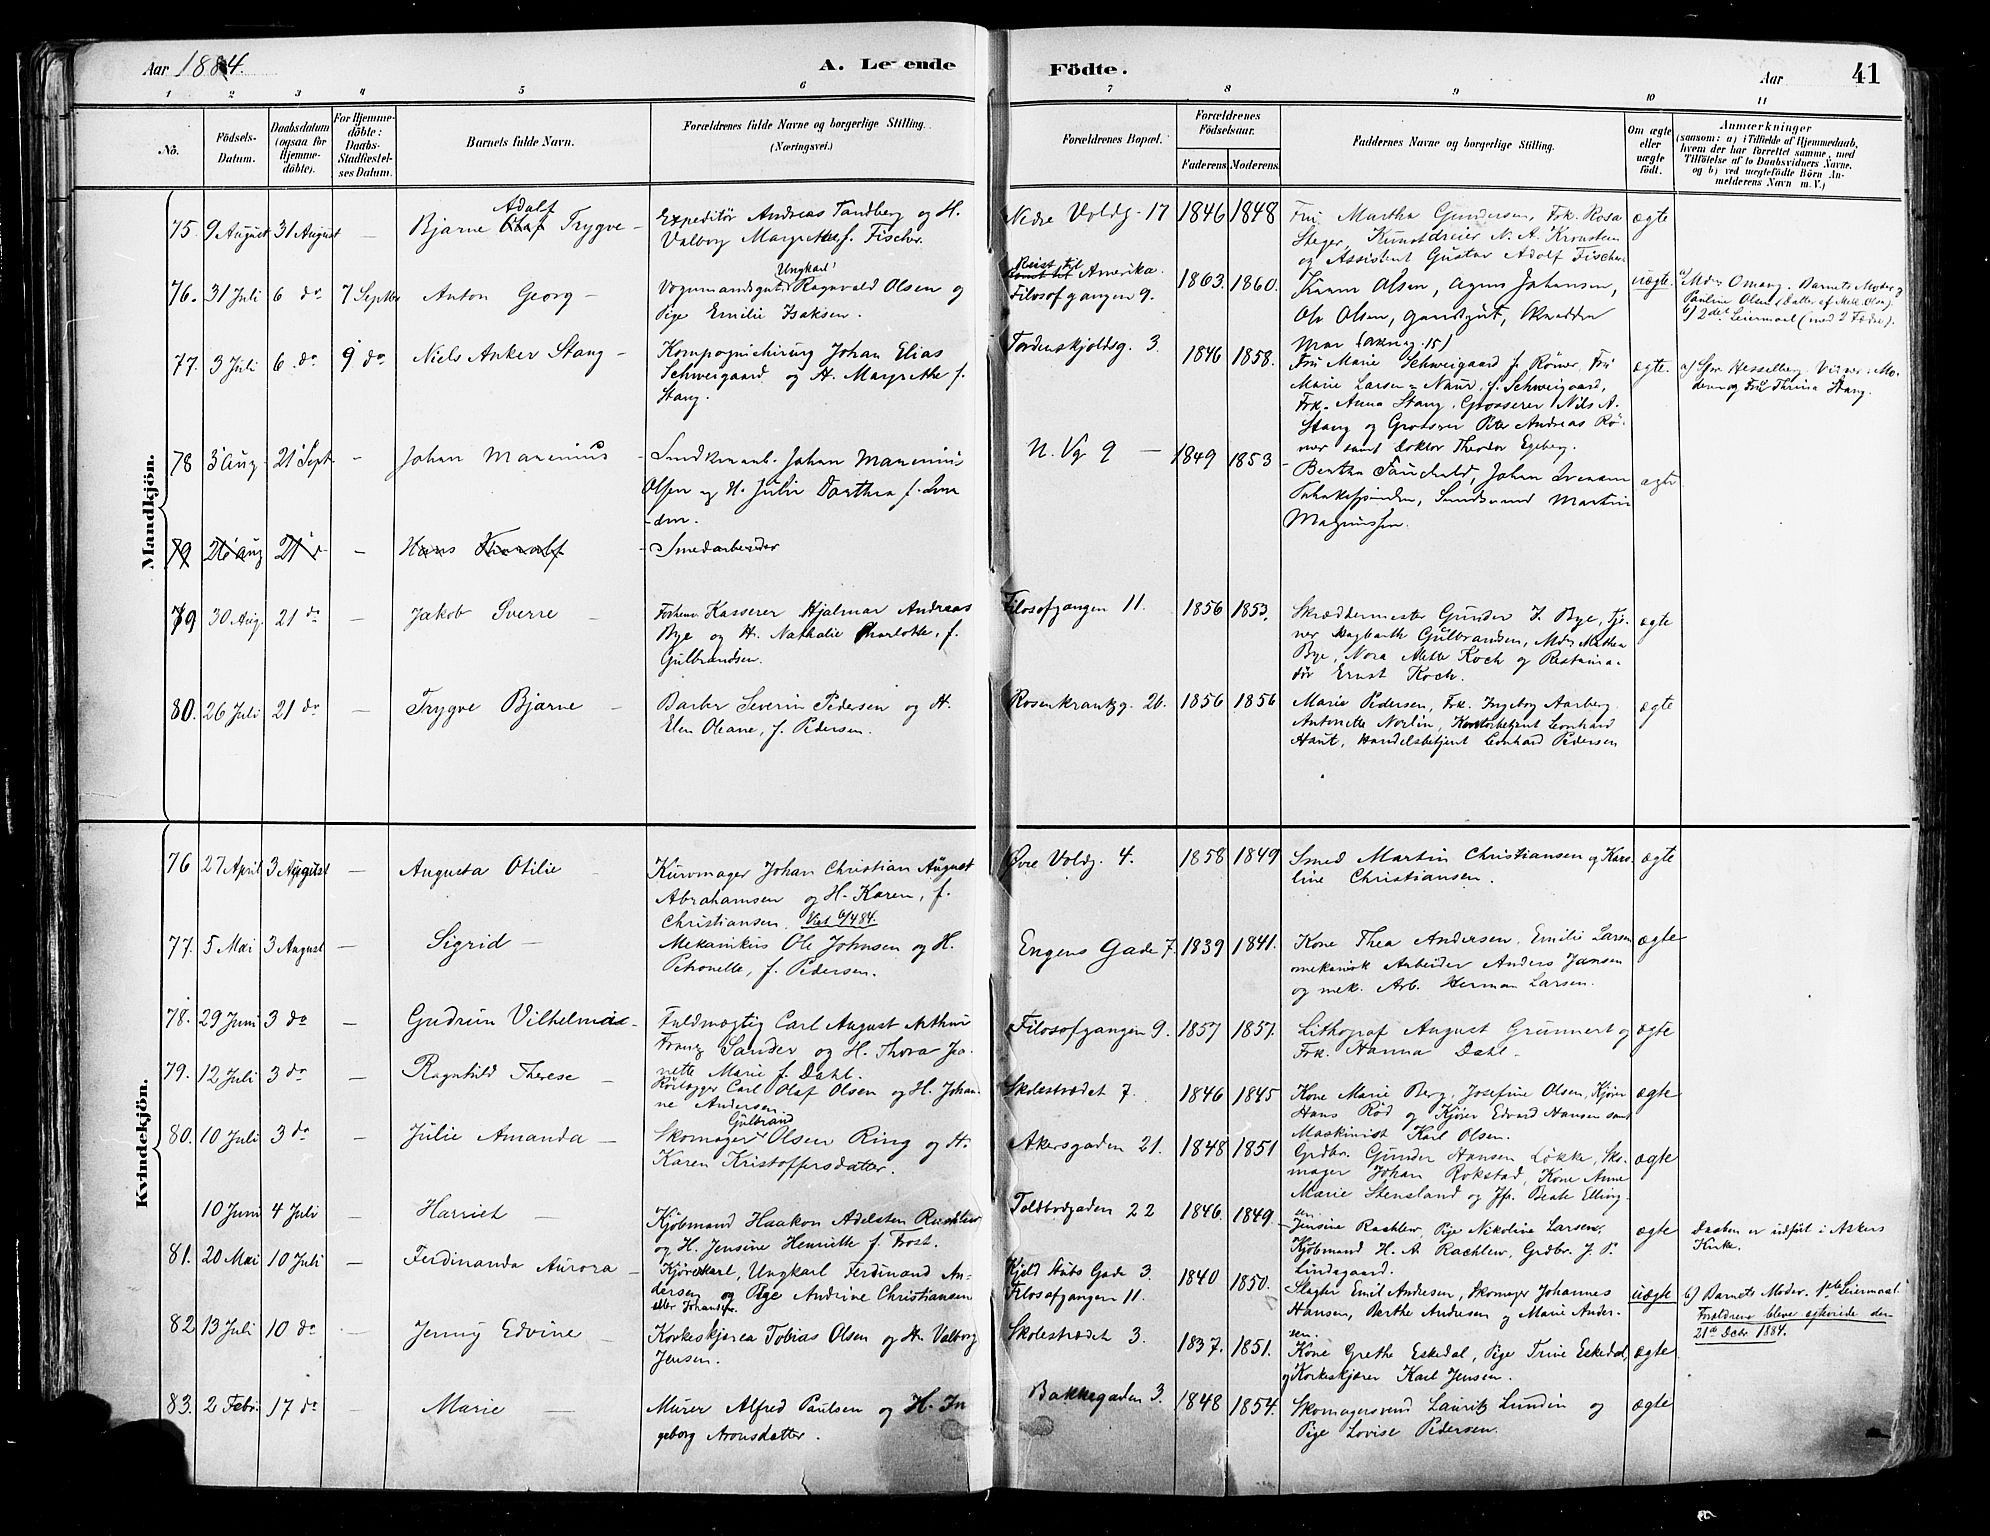 Aar 1884.
A. Levende
Födte.
Aar
41
1 2 3 4 5 6 7 8 9 10 11
No.
Födsels-
Datum.
Daabsdatum
(ogsaa for
Hjemme-
döbte).
For Hjemme-
döbte:
Daabs-
Stadfæstel-
ses Datum.
Barnets fulde Navn.
Forældrenes fulde Navne og borgerlige Stilling.
(Næringsvei.)
Forældrenes Bopæl.
Forældrenes
Födselsaar.
Faderens. Moderens.
Faddernes Navne og borgerlige Stilling.
Om ægte
eller
uægte
födt.
Anmærkninger
(saasom: a) i Tilfælde af Hjemmedaab,
hvem der har forrettet samme, med
Tilföielse af to Daabsvidners Navne,
og b) ved uægtefödte Börn An-
melderens Navn m. V.)
Mandkjön.
75. 9 August 31 August – Bjarne Olaf Trygve –
Adolf
Expeditör Andreas Tandberg og H.
Valborg Margrethe f. Fischer.
Nedre Voldg. 17 1846 1848
Fru Martha Gundersen, Frk. Rosa
Steger, Kunstdreier N. A. Kronstem
og Assistent Gustav Adolf Fischer
ægte
76. 31 Juli 6 do 7 Septbr Anton Georg –
Ungkarl
Vognmandsgut Ragnvald Olsen og
Pige Emilie Isaksen.
Reist til Amerika.
Filosofgangen 9.
1863. 1860.
Karen Olsen, Agnes Johansen,
Ole Olsen, gaardsgut, Skrædder
uægte.
a) Mdm Omang. Barnets Moder og
Pauline Olsen (Datter af Mell. Olsen).
b) 2det Leiermaal (med 2 Fædre).
77. 3 Juli 6. do 9 do Niels Anker Stang –
Kompagnichirurg Johan Elias
Schweigaard og H. Margrethe f.
Stang.
Tordenskjoldsg. 3.
1846 1858.
Fru Marie Schweigaard f. Röner, Fru
Marie Larsen-Naur, f. Schweigaard,
Frk. Anna Stang, Grosserer Nils A.
Stang og Grosserer Peter Andreas Rö-
ner samt Doktor Theodor Egeberg.
ægte.
a) Spr. Hesselberg. Vidner: Mo-
deren og Fru Thrina Stang.
78 3 Aug 21 Sept – Johan Marenius
– Smedkmanb. Johan Marenius
Olsen og H. Julie Dorthea f.
N. Vg 9 – 1849 1853
– Bertha Fauchald, Johan
Tobakspinder, Smedsvend Martin
Magnussen.
ægte
79 26 Aug 21 d – Hans Thoralf
– Smedarbeider
79 30 Aug. 21 do – Jakob Sverre –
Forhenv. Kasserer Hjalmar Andreas
Bye og H. Nathalie Charlotte, f.
Gulbrandsen.
Filosofgangen 11. 1856 1853.
Skræddermester Gunder J. Bye, Tje-
ner Dagbarth Gulbrandsen, Mdm Mathea
Bye, Nora Alette Koch og Restaura-
tör Ernst Koch.
ægte
80. 26 Juli 21 do – Trygve Bjarne –
Barber Severin Pedersen og H.
Elen Oleane, f. Pedersen.
Rosenkrantzg. 26. 1856 1856
Marie Pedersen, Frk. Ingeborg Aarberg.
Antonette Norlin, Kontorbetjent Leonhard
Haut, Handelsbetjent Leonhard Pedersen
ægte
Kvindekjön.
76 27 April 3 August – Augusta Otilie –
Kurvmager Johan Christian August
Abrahamsen og H. Karen, f.
Christiansen. Viet 6/4 84.
Øvre Voldg. 4. 1858 1849
Smed Martin Christiansen og Karo-
line Christiansen.
ægte
77. 5 Mai 3 August – Sigrid –
Mekanikus Ole Johnsen og H.
Petronelle, f. Pedersen.
Engens Gade 7. 1839 1841.
Kone Thea Andersen, Emilie Larsen
mekanisk Arbeider Anders Jansen
og mek. Arb. Herman Larsen.
ægte
78. 29 Juni 3 do – Gudrun Vilhelmine –
Fuldmægtig Carl August Arthur
Franz Sander og H. Thora Ja-
nette Marie f. Dahl.
Filosofgangen 9. 1857 1857.
Lithograf August Grunnert og
Frk. Hanna Dahl –
ægte
79. 12 Juli 3 do – Ragnhild Therese –
Rörlægger Carl Olaf Olsen og H. Johan-
ne Andersen
Skolestrædet 7. 1846 1845
Kone Marie Berg, Josefine Olsen, Kjörer
Hans Röd og Kjörer Edvard Hansen samt
Maskinist Karl Olsen.
ægte
80. 10 Juli 3 do – Julie Amanda –
Gulbrand
Skomager Olsen Ring og H.
Karen Kristoffersdatter.
Akersgaden 21. 1848 1851
Grdbr. Gunder Hansen Løkke, Sko-
mager Johan Rokstad, Kone Anne
Marie Stensland og Jfr. Beate Elling-
sen.
ægte
10 Juni 4 Juli – Harriet –
Kjöbmand Haakon Adelsten Rachlew
og H. Jensine Henriette f. Frost.
Toldbodgaden 22 1846. 1849
– Jensine Rachlew, Pige Nikoline Larsen,
Kjöbmand H. A. Rachlew, Grdbr. J. P.
Lindegaard.
ægte
Daaben er udfört i Askers
Kirke.
81. 20 Mai 10 Juli – Ferdinanda Aurora –
Kjörekarl, Ungkarl Ferdinand An-
dersen og Pige Andrine Christiansen
eller Johansen
Kjeld Stubs Gade 3.
Filosofgangen 11.
1840 1850.
Slagter Emil Andresen, Skomager Johannes
Hansen, Berthe Andresen og Marie Ander-
sen.
uægte
b) Barnets Moder. 1ste Leiermaal.
Forældrene bleve egteviede den
21de Decbr 1884.
82 13 Juli 10 do – Jenny Edvine –
Korkeskjærer Tobias Olsen og H. Valborg
Jensen.
Skolestrædet 3. 1837. 1851.
Kone Grethe Eskedal, Pige Trine Eskedal,
og Korkeskjærer Karl Jensen.
ægte
83. 2 Febr. 17 do – Marie –
Murer Alfred Paulsen og H. In
geborg Aronsdatter.
Bakkegaden 3. 1848 1854.
Skomagersvend Lauritz Lundin og
Pige Lovise Pedersen.
ægte